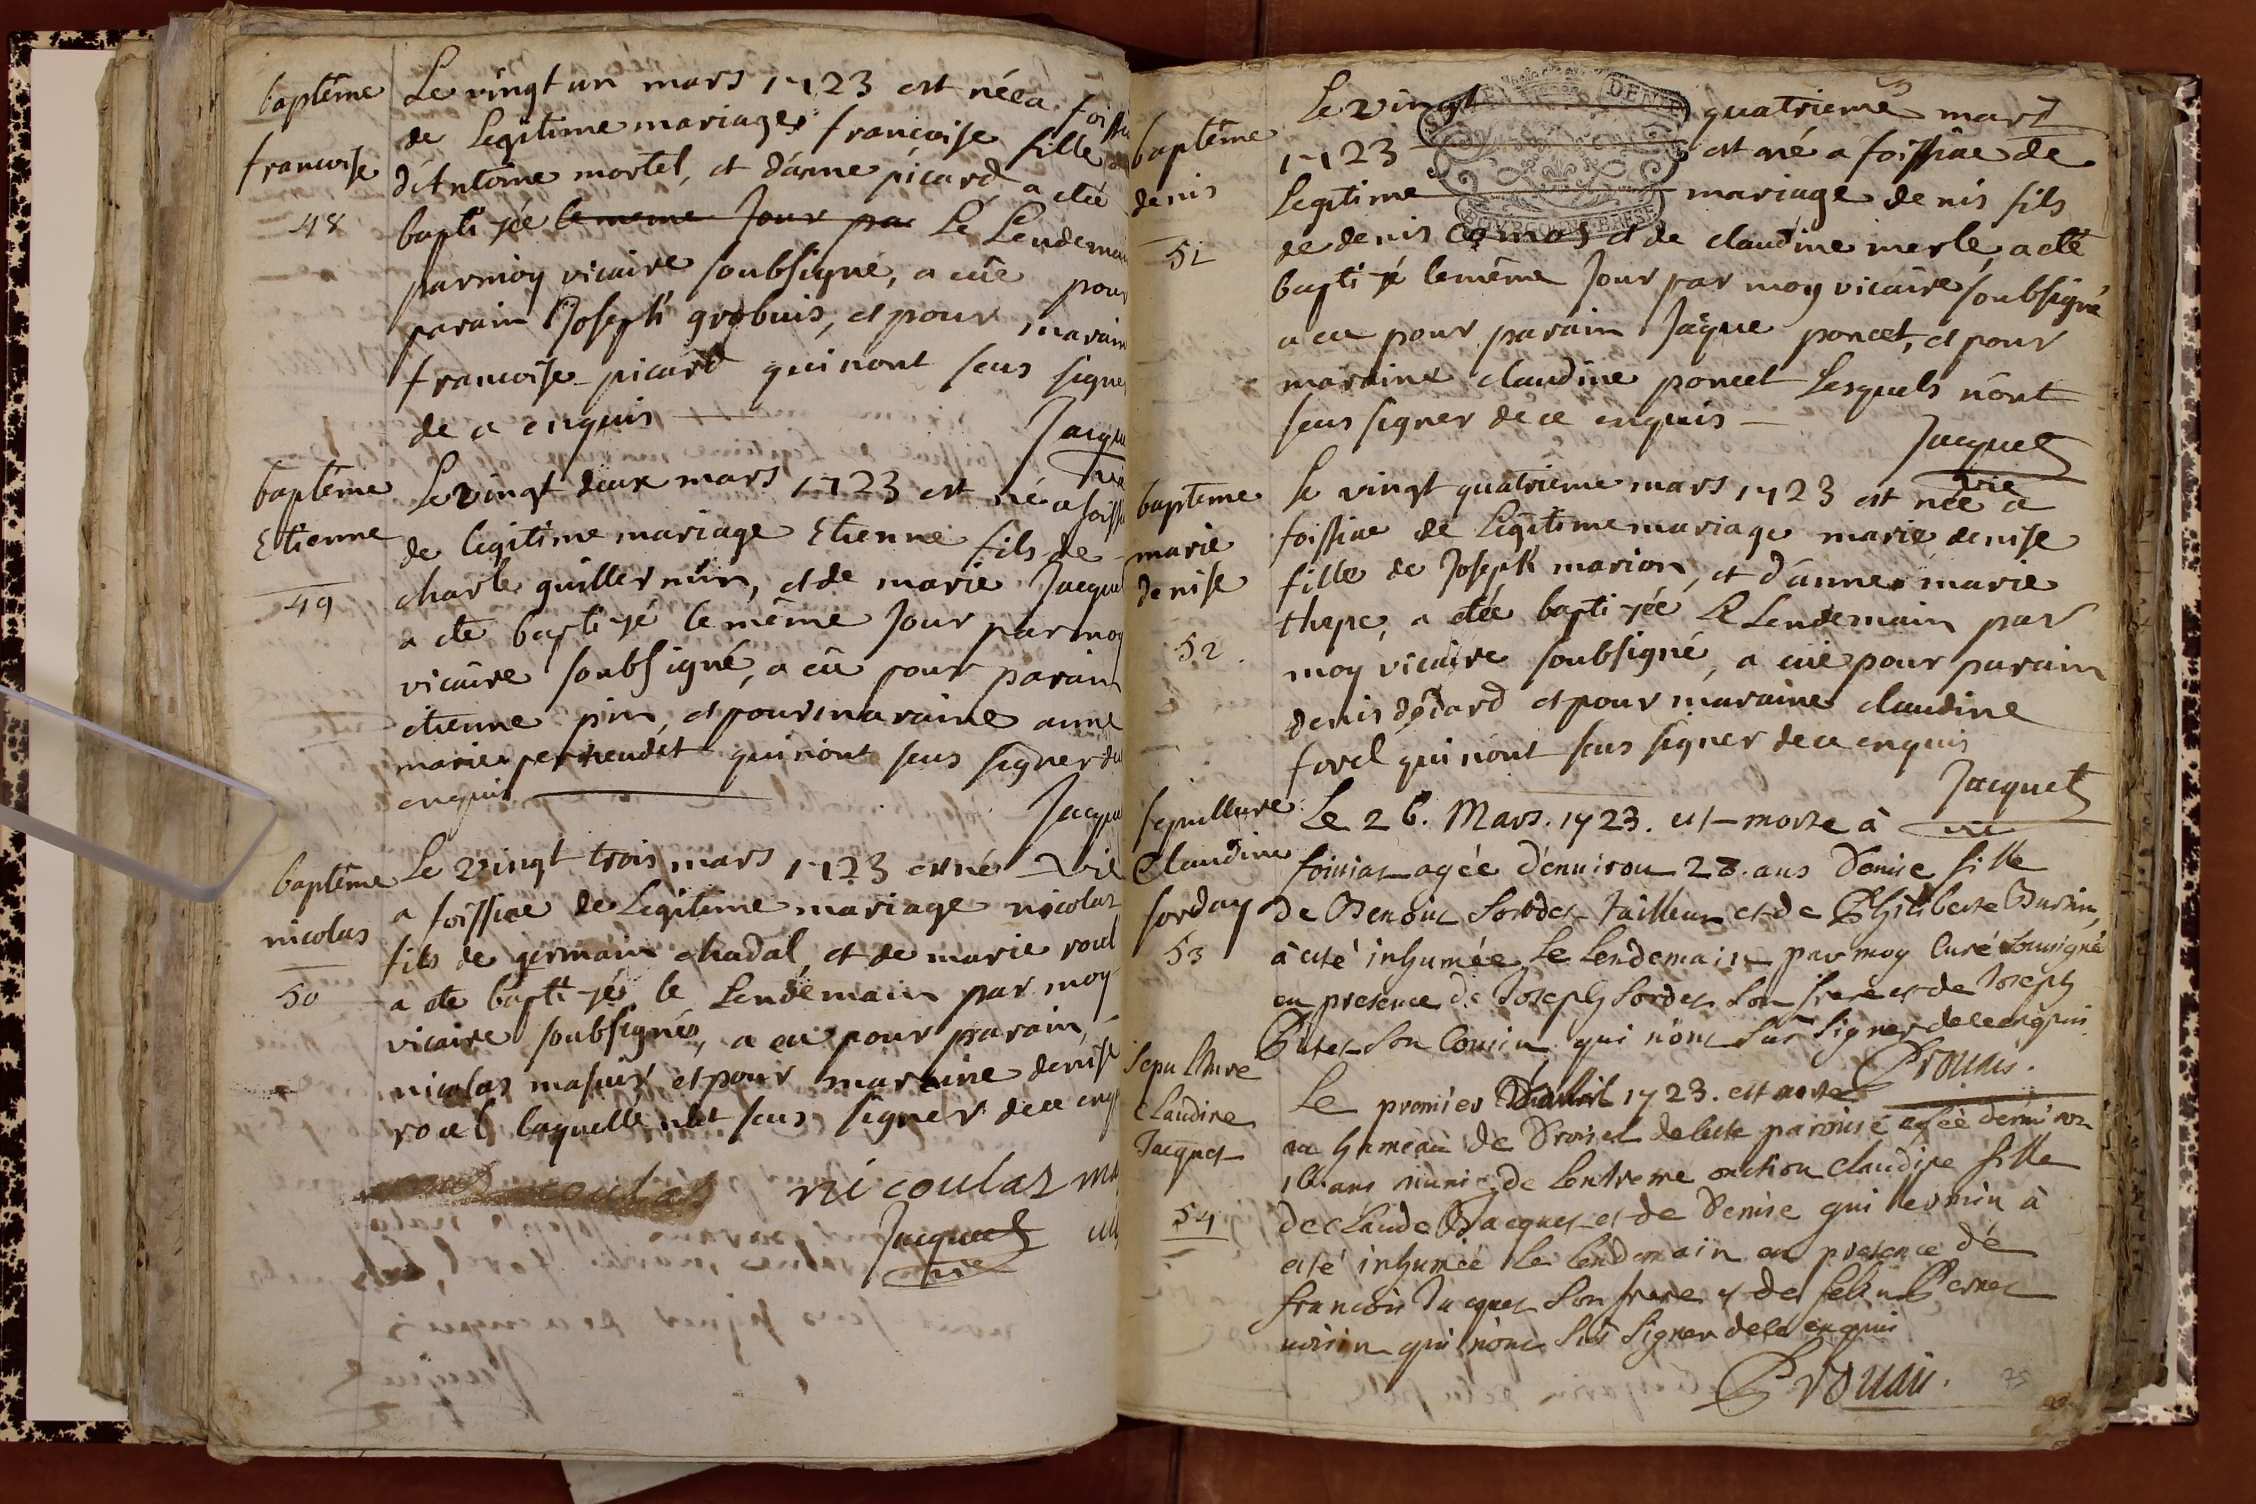 baptême
francoise
48
Le vingt un mars 1723 est née a foissia
de legitime mariage francoise fille
d'Antoine mortel, et d'anne picard a etée
bapti zée le meme Jour par Le Lendemain
par moy vicaire soubsigné, a eüe pour
parain Joseph grobuis, et pour marain
francoise picard qui nont seus signer
de ce enquis
Jacque
vic
baptême
Etienne
49
Le vingt deux mars 1723 est né a foissia
de legitime mariage Etienne fils de
charle guillermin, et de marie Jacquet
a eté bapti zé le même Jour par moy
vicaire soubsigné, a eü pour parain
etienne pin, et pour maraine anne
marie perraudet qui n'ont seus signer de
enquis
Jacque
vic
baptême
nicolas
50
Le vingt trois mars 1723 est né
a foissiae de Legitime mariage nicolas
fils de germain chadal, et de marie roul
a eté bapti zé le Lendemain par moy
vicaire soubsigné, a eu pour parain,
nicolas masuir et pour maraine denise
rouel laquelle n'at seus signer de ce enq
nicoulas ma
Jacquet
vic
baptême
denis
51
Le vingt quatrieme mars
1723 est né a foissiae de
Legitime mariage denis fils
de denis comas et de claudine merle, a eté
bapti zé le même Jour par moy vicaire soubsigné
a eu pour parain Jaque poncet, et pour
maraine claudine poncet Lesquels n'ont
seus signer de ce enquis
Jacquet
vic
baptême
marie
denise
52
Le vingt quatrieme mars 1723 est née a
foissiae de Legitime mariage marie denise
fille de Joseph marion, et d'anne marie
thepe, a etée bapti zée Le Lendemain par
moy vicaire soubsigné, a eüe pour parain
denis dodard et pour maraine claudine
forel qui n'ont seus signer de ce enquis
Jacquet
vic
sepulture
Claudine
sorday
53
Le 26. Mars. 1723. est morte à
foissiat agée d'enuiron 28. ans Denise fille
de Benoist Sordet Tailleur et de Philiberte Burin,
à eté inhumée le lendemain par moy Curé soussigné
en presence de Joseph Sordet Son frere et de Joseph
Putet Son Cousin qui n'ont Sus Signer de ce enquis
Prouais.
Sepulture
Claudine
Jacquet
54
Le premier D'auril 1723. est morte
au hameau de Droiset de cette paroisse agée d'enuiron
16. ans munie de L'extreme onction Claudine fille
de Claude Jacquet et de Denise guillermin à
eté inhumée le lendemain en presence de
francois Jacquet Son frere et de Pernet
uoisin qui n'ont Sus Signer de ce enquis
Prouais.
75